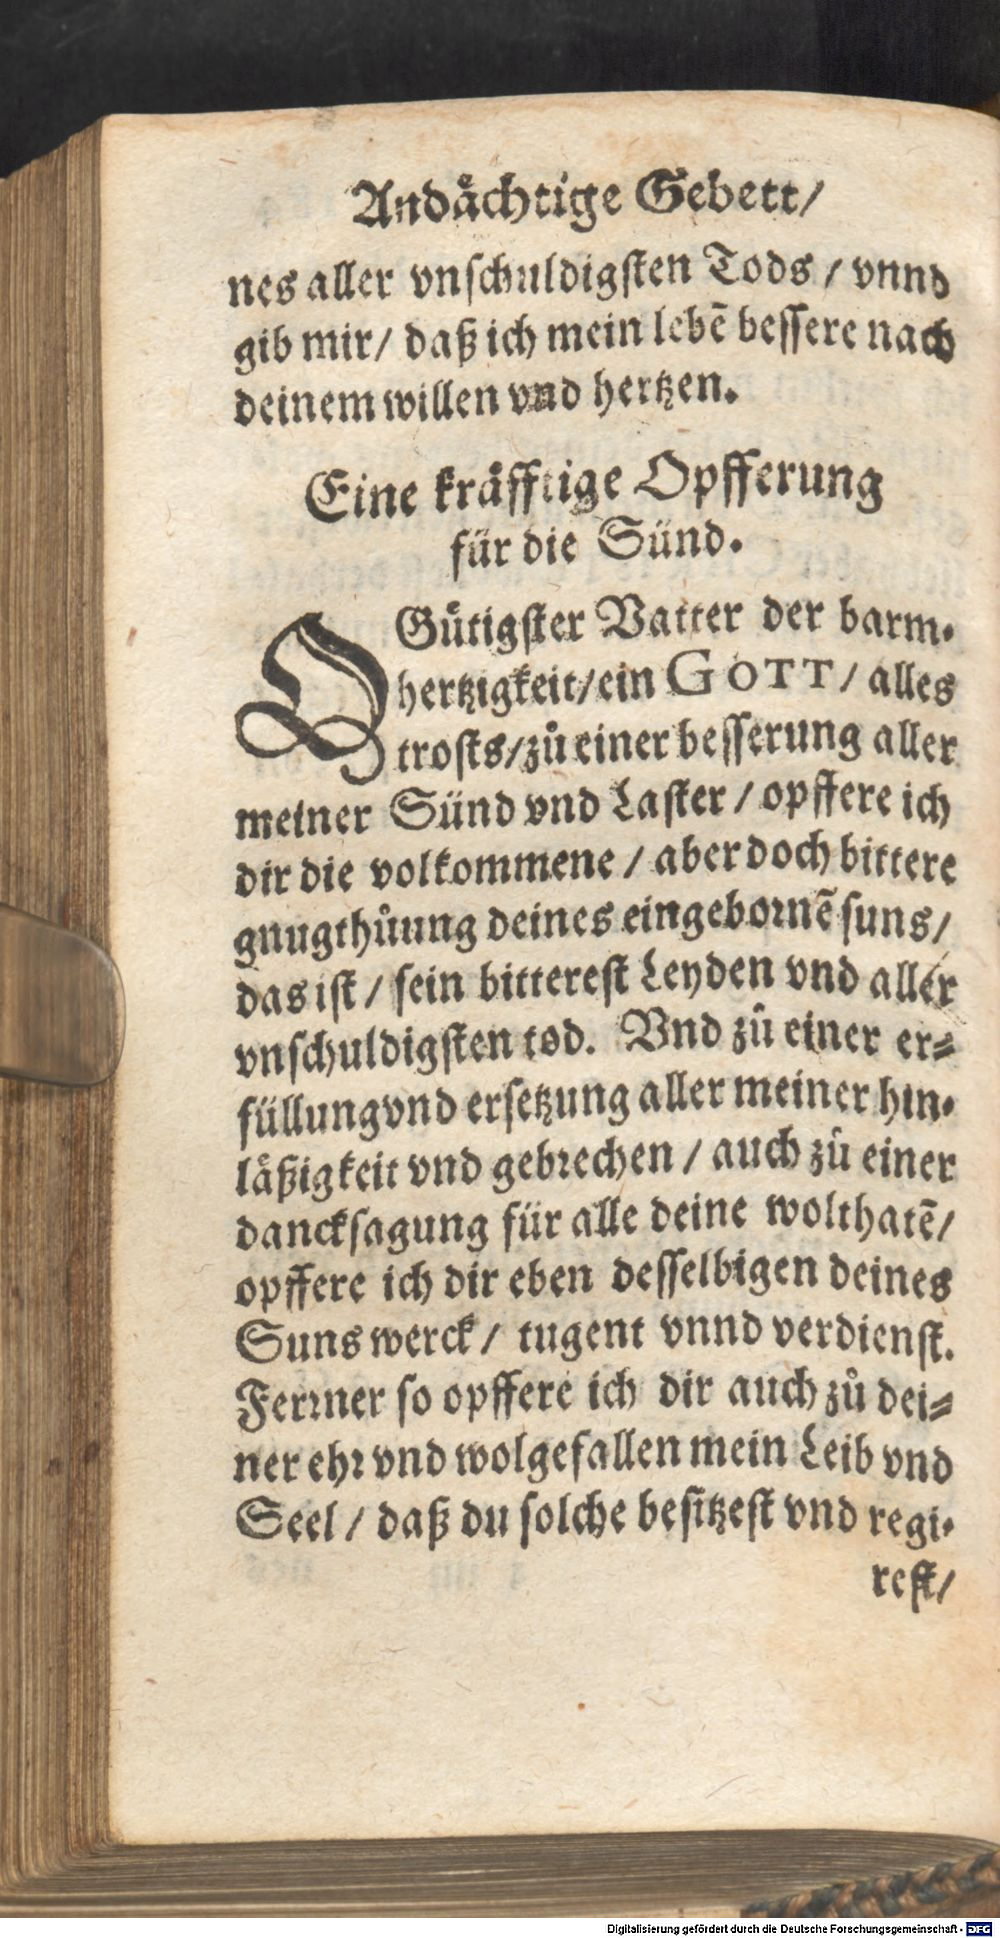 Andåchtige Gebett/
nes aller vnſchuldigſten Tods / vnnd
gib mir/ daß ich mein lebē beſſere nach
deinem willen vnd hertzen.
Eine kråfftige Opfferung
für die Sünd.
O Gůtigſter Vatter der barm-
hertzigkeit/ein GOTT/ alles
troſts/zů einer beſſerung aller
meiner Sünd vnd Laſter / opffere ich
dir die volkommene / aber doch bittere
gnugthůung deines eingebornē ſuns/
das iſt / ſein bittereſt Leyden vnd aller
vnſchuldigſten tod. Vnd zů einer er-
füllung vnd erſetzung aller meiner hin-
låßigkeit vnd gebrechen / auch zů einer
danckſagung für alle deine wolthatē/
opffere ich dir eben deſſelbigen deines
Suns werck / tugent vnnd verdienſt.
Ferrner ſo opffere ich dir auch zů dei-
ner ehr vnd wolgefallen mein Leib vnd
Seel / daß du ſolche beſitzeſt vnd regi-
reſt/
Digitalisierung gefördert durch die Deutsche Forschungsgemeinschaft - DFG